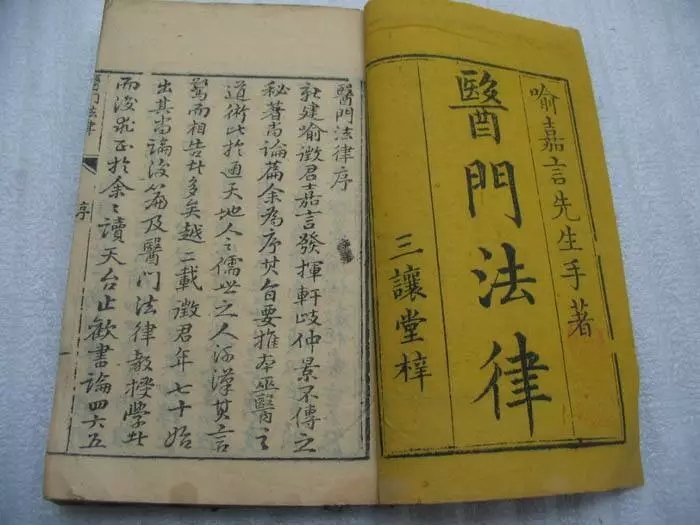 喻嘉言先生手著
醫門法律
三讓堂梓
醫門法律序
新建喻徵君嘉言發揮軒岐仲景不傳之
秘著尚論篇余為序其旨要推本巫醫之
道術比於通天地人之儒世之人河漢其言
驚而相告者多矣越二載徵君年七十始
出其尚論後篇及醫门法律教授學者
而復求正於余〻讀天台止觀書論四大五
醫门法律
序